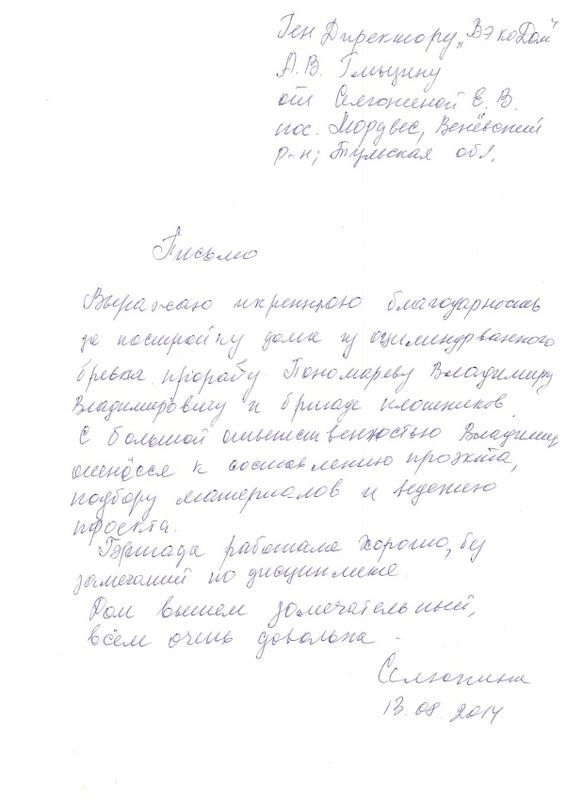 Ген Директору „ВэкоДом"
А.В.
от Селюжиной Е. В.
пос. Мордвес, Венёвский
р-н; Тульская обл.
Письмо
Выражаю искреннюю благодарность
за постройку дома из оцилиндрованного
бревна прорабу Пономареву Владимиру
Владимировичу и бригаде плотников.
С большой ответственностью Владимир
отнёсся к составлению проэкта,
подбору материалов и ведению
проекта.
Бригада работала хорошо, без
замечаний по дисциплине.
Дом вышел замечательный,
всем очень довольна.
13.08.2014